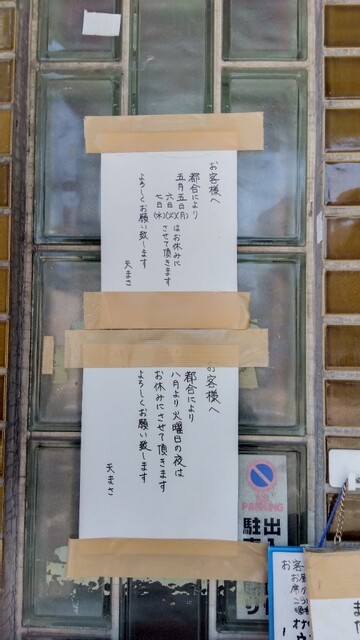 お客様へ
都合により
五月五日(月)
六日(火)
七日(水)
はお休みに
させて頂きます
よろしくお願い致します
天まさ
お客様へ
都合により
八月より火曜日の夜は
お休みにさせて頂きます
よろしくお願い致します
天まさ
NO
PARKING
出入
駐車
お客
お席